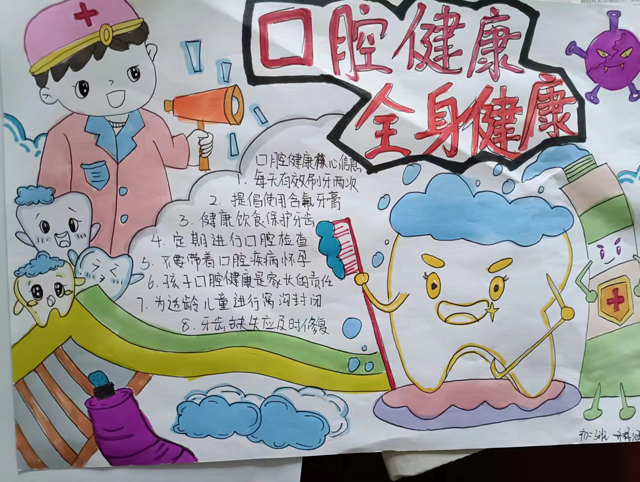 口腔健康
全身健康
口腔健康核心信息
1. 每天有效刷牙两次
2. 提倡使用含氟牙膏
3. 健康饮食保护牙齿
4. 定期进行口腔检查
5. 不要带着口腔疾病怀孕
6. 孩子口腔健康是家长的责任
7. 为适龄儿童进行窝沟封闭
8. 牙齿缺失应及时修复